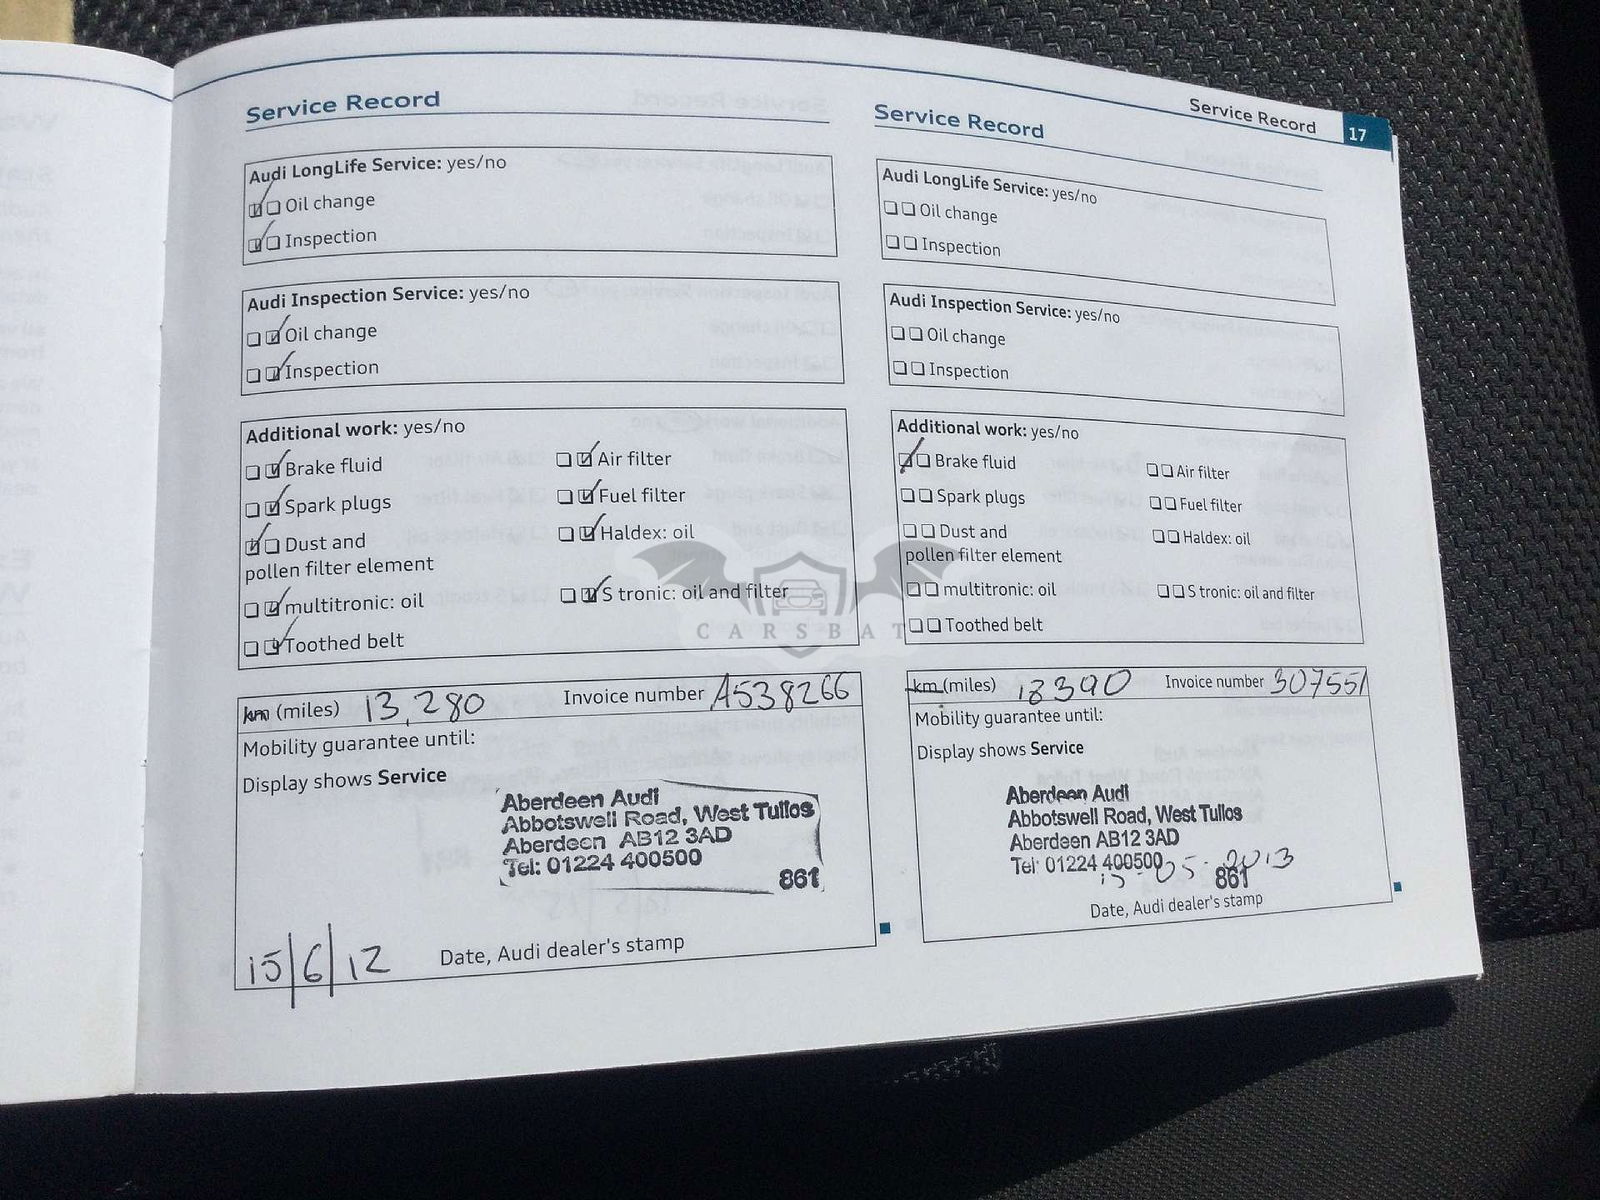 Service Record
17
Service Record
Audi LongLife Service: yes/no
Oil change
Inspection
Audi Inspection Service: yes/no
Oil change
Inspection
Additional work: yes/no
Brake fluid
Air filter
Spark plugs
Fuel filter
Dust and
pollen filter element
Haldex: oil
multitronic: oil
S tronic: oil and filter
Toothed belt
km (miles) 13,280 Invoice number A538266
Mobility guarantee until:
Display shows Service
Aberdeen Audi
Abbotswell Road, West Tullos
Aberdeen AB12 3AD
Tel: 01224 400500
861
15/6/12 Date, Audi dealer's stamp
Service Record
Audi LongLife Service: yes/no
Oil change
Inspection
Audi Inspection Service: yes/no
Oil change
Inspection
Additional work: yes/no
Brake fluid
Air filter
Spark plugs
Fuel filter
Dust and
pollen filter element
Haldex: oil
multitronic: oil
S tronic: oil and filter
Toothed belt
km (miles) 18390 Invoice number 307551
Mobility guarantee until:
Display shows Service
Aberdeen Audi
Abbotswell Road, West Tullos
Aberdeen AB12 3AD
Tel: 01224 400500
05-2013
861
Date, Audi dealer's stamp
CARSBAT